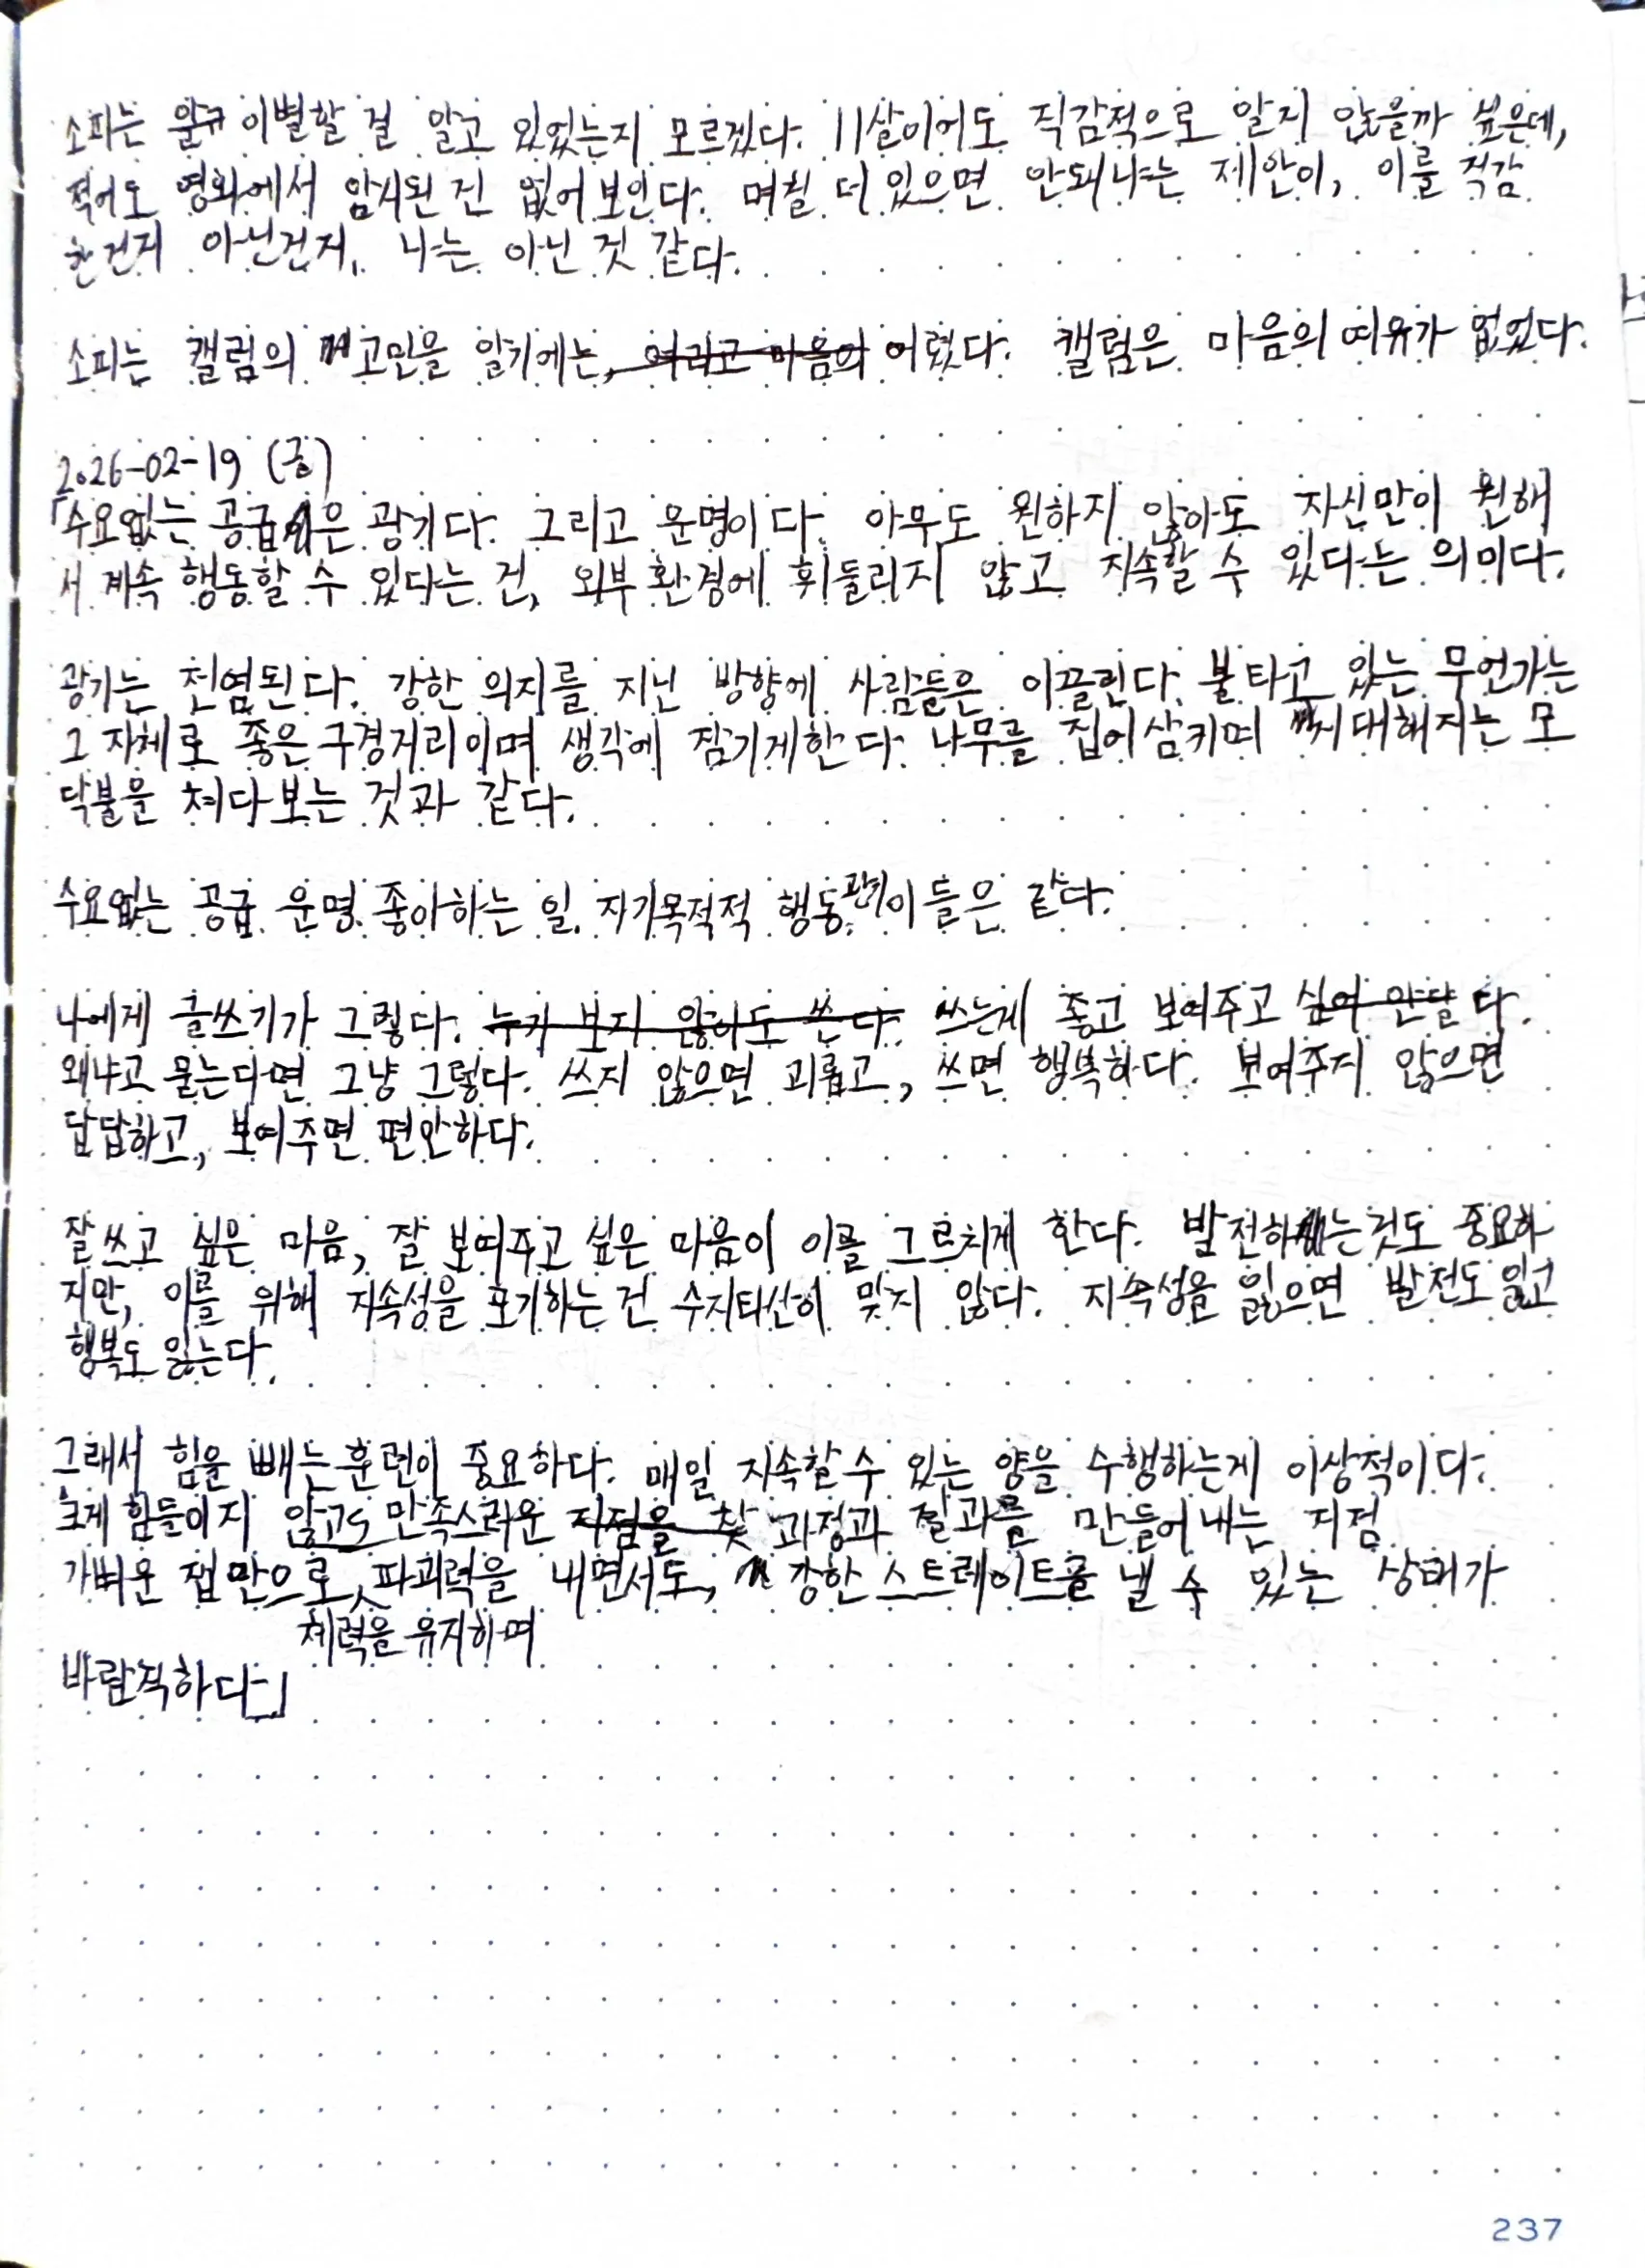 소피는 이별할 걸 알고 있었는지 모르겠다. 11살이어도 직감적으로 알지 않을까 싶은데,
적어도 영화에서 암시된 건 없어보인다. 며칠 더 있으면 안돼냐는 제안이, 이를 직감
한건지 아닌건지, 나는 아닌 것 같다.
소피는 캘럼의 고민을 알기에는, 여리고 마음이 어렸다. 캘럼은 마음의 여유가 없었다.
2026-02-19 (금)
「수요없는 공급은 광기다. 그리고 운명이다. 아무도 원하지 않아도 자신만이 원해
서 계속 행동할 수 있다는 건, 외부 환경에 휘둘리지 않고 지속할 수 있다는 의미다.
광기는 전염된다. 강한 의지를 지닌 방향에 사람들은 이끌린다. 불타고 있는 무언가는
그 자체로 좋은 구경거리이며 생각에 잠기게한다. 나무를 집어삼키며 거대해지는 모
닥불을 쳐다보는 것과 같다.
수요없는 공급. 운명. 좋아하는 일. 자기목적적 행동. 광기 이들은 같다.
나에게 글쓰기가 그렇다. 누가 보지 않아도 쓴다. 쓰는게 좋고 보여주고 싶어 안달 다.
왜냐고 묻는다면 그냥 그렇다. 쓰지 않으면 괴롭고, 쓰면 행복하다. 보여주지 않으면
답답하고, 보여주면 편안하다.
잘쓰고 싶은 마음, 잘 보여주고 싶은 마음이 이를 그르치게 한다. 발전하는것도 중요하
지만, 이를 위해 지속성을 포기하는 건 수지타산이 맞지 않다. 지속성을 잃으면 발전도 잃고
행복도 잃는다.
그래서 힘을 빼는 훈련이 중요하다. 매일 지속할수 있는 양을 수행하는게 이상적이다.
크게 힘들이지 않고도 만족스러운 지점을 찾 과정과 결과를 만들어내는 지점.
가벼운 잽만으로 파괴력을 내면서도, 강한 스트레이트를 낼 수 있는 상태가
체력을 유지하며
바람직하다.」
237